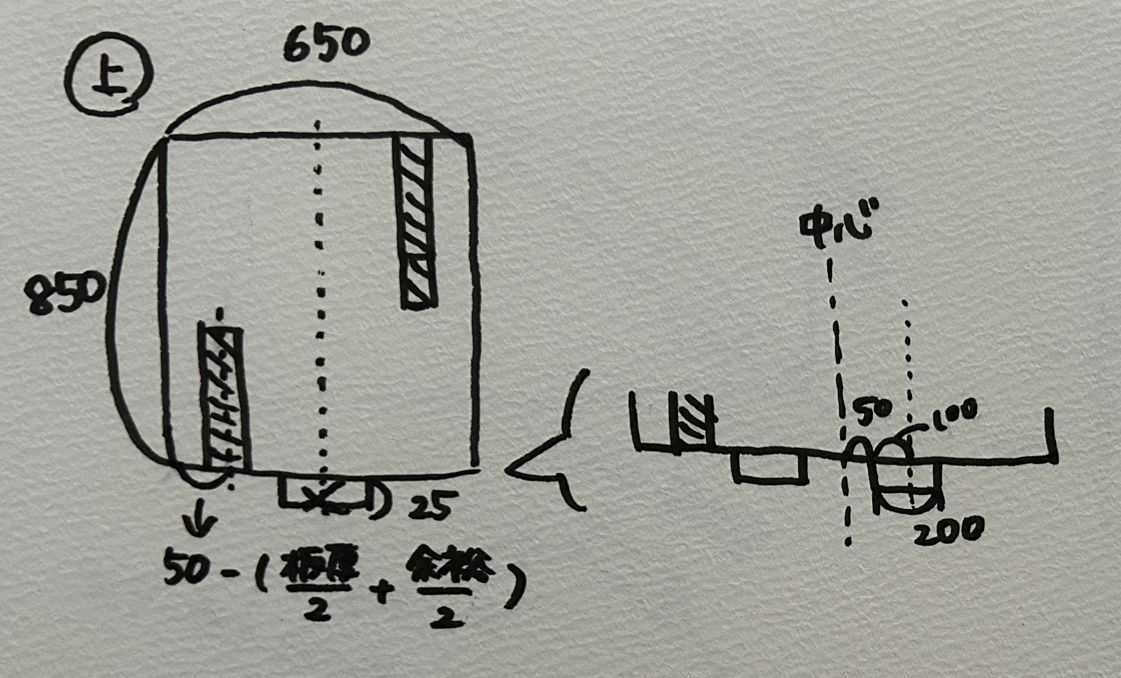 上
650
850
25
50-(板厚/2+余裕/2)
中心
50
100
200